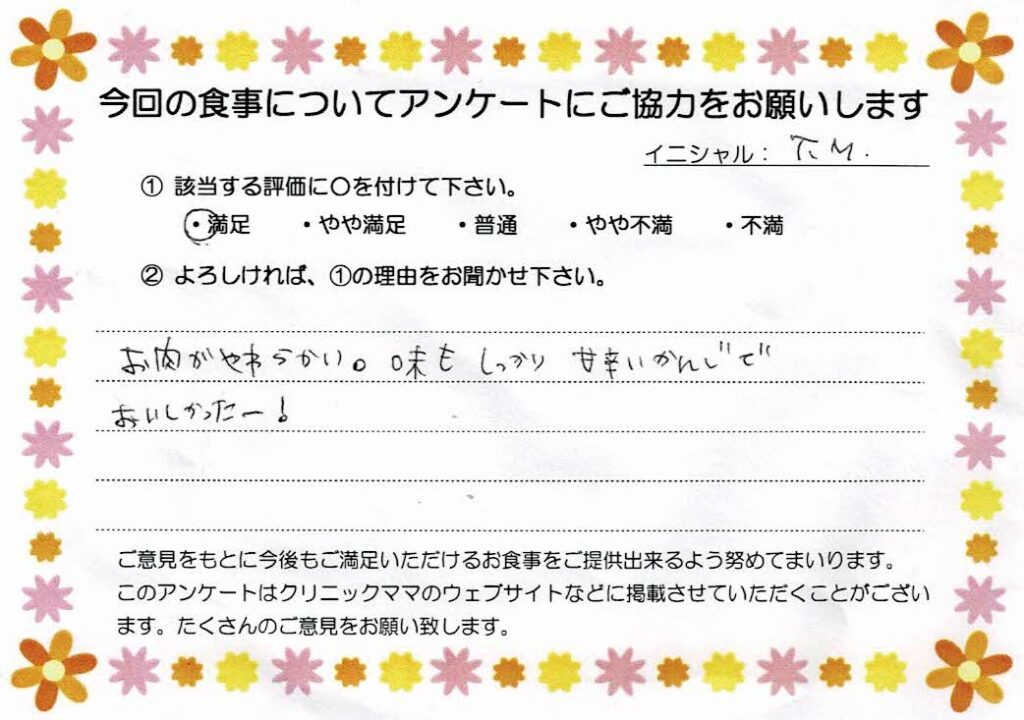 今回の食事についてアンケートにご協力をお願いします
イニシャル： T. M.
① 該当する評価に〇を付けて下さい。
・満足 ・やや満足 ・普通 ・やや不満 ・不満
② よろしければ、①の理由をお聞かせ下さい。
お肉がやわらかい。味もしっかり 甘辛いかんじで
おいしかったー！
ご意見をもとに今後もご満足いただけるお食事をご提供出来るよう努めてまいります。
このアンケートはクリニックママのウェブサイトなどに掲載させていただくことがござい
ます。たくさんのご意見をお願い致します。